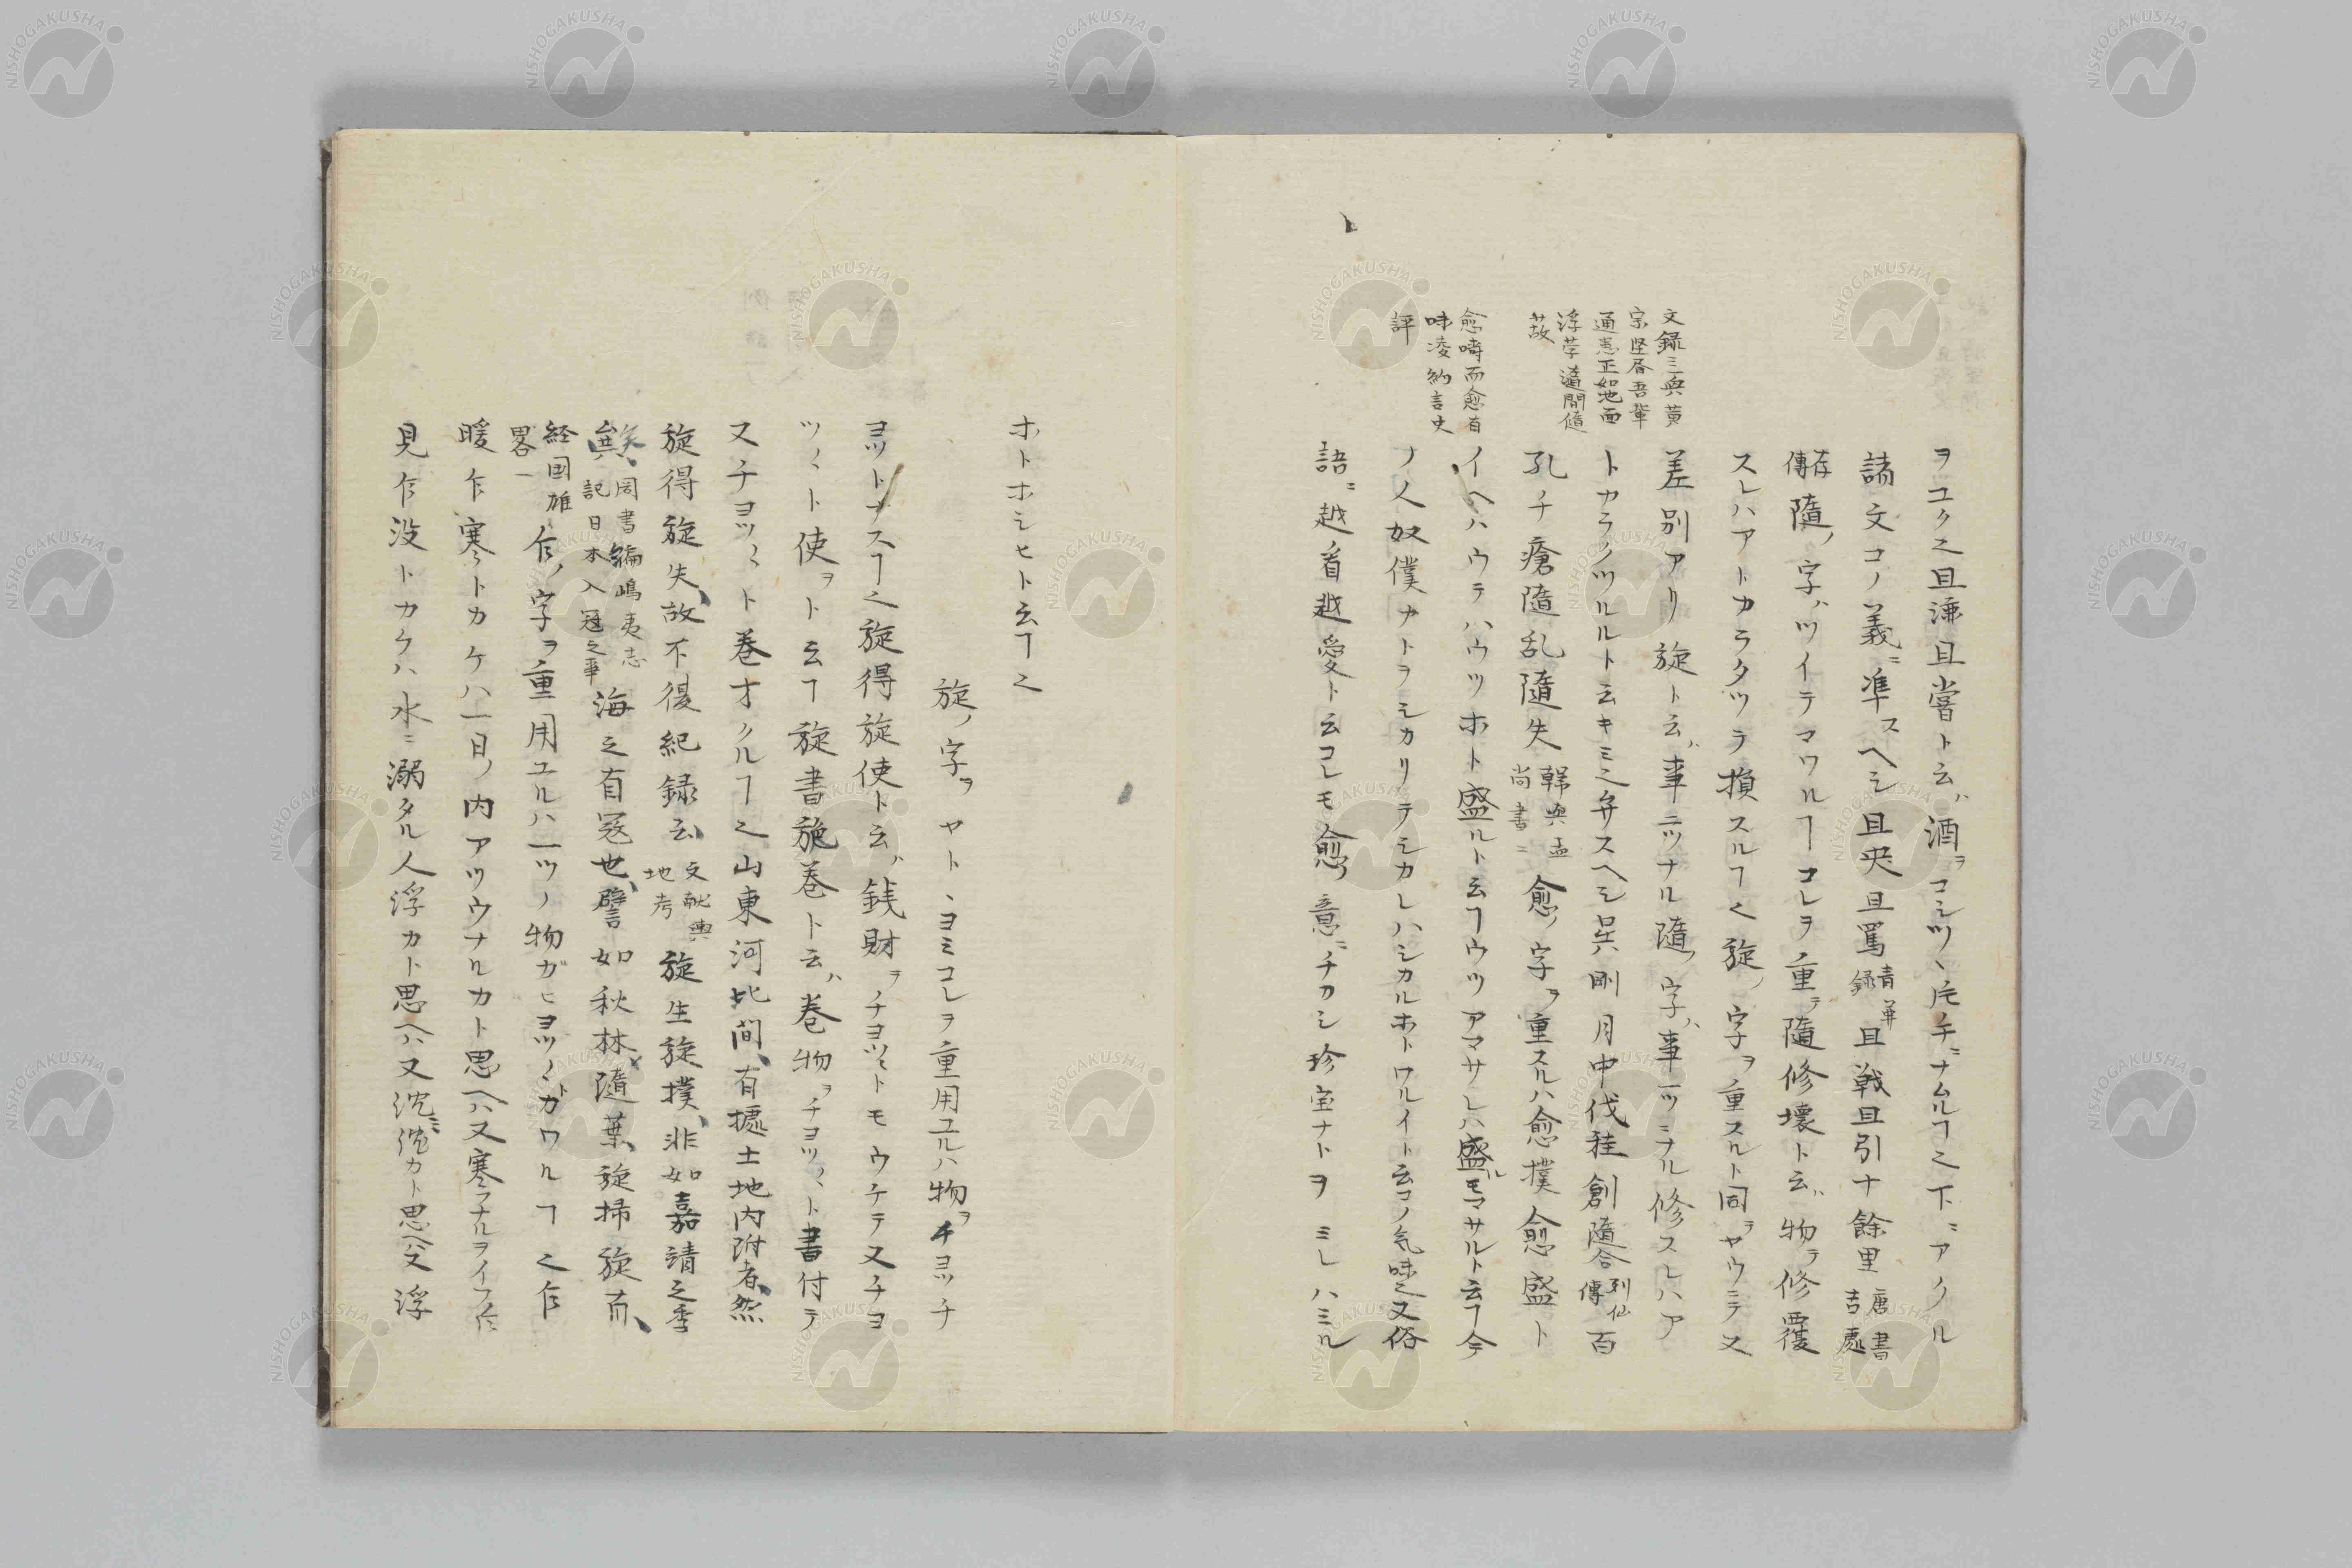 ヲユク之且漉且嘗ト云ハ酒ヲコシツヽ片手ニナムルヿ之下ニアクル
諸文コノ義ニ準スヘシ且央且罵
青華
録
且戦且引十餘里
唐書
吉處
存
傳
隨ノ字ハツイテマワルヿコレヲ重テ隨修壊ト云ハ物ヲ修覆
スレハアトカラタツラ損スルヿ之旋ノ字ヲ重スルト同ヲヤウニテ又
差別アリ旋ト云ハ事二ツナル隨ノ字ハ事一ツニナル修スレハア
トカラクツルルト云キミ之弁スヘシ呉剛月中伐桂創隨合
列仙
傳
百
孔千瘡隨乱隨失
韓與孟
尚書ニ
愈ノ字ヲ重スルハ愈撲愈盛ト
イヘハウテハウツホト盛ルト云ヿウツアマサレハ盛ルモマサルト云ヿ今
ノ人奴僕ナトヲシカリテシカレハシカルホトワルイト云コノ気味之又俗
語ニ越看越愛ト云コレモ愈ノ意ニチカシ珍宝ナトヲミレハミル
文録三與黄
宗堅居吾輩
通患正如池面
浮萍隨開隨
蔽
愈嚼而愈有
味凌約言史
評
ホトホシヒト云ヿ之
旋ノ字ヲヤトヽヨミコレヲ重用ユルハ物ヲチヨツチ
ヨツトナスヿ之旋得旋使ト云ハ銭財ヲチヨツトモウケテ又チヨ
ツヽト使ヲト云ヿ旋書旋巻ト云ハ巻物ヲチヨツヽト書付テ
又チヨツヽト巻オクルヿ之山東河北間有攄土地内附者然
旋得旋失故不復紀録云
文献輿
地考
旋生旋撲非如嘉靖之季
矣
興
図書編嶋夷志
記日本入冦之事
海之有冦也譬如秋林隨葉旋掃旋有
経国雄
畧一
乍ノ字ヲ重用ユルハ二ツノ物ガヒヨツヽトカワルヿ之乍
暖乍寒トカケハ一日ノ内アツウナルカト思ヘハ又寒ウナルヲイフ乍
見乍没トカケハ水ニ溺タル人浮カト思ヘハ又沈ミ沈カト思ヘハ又浮